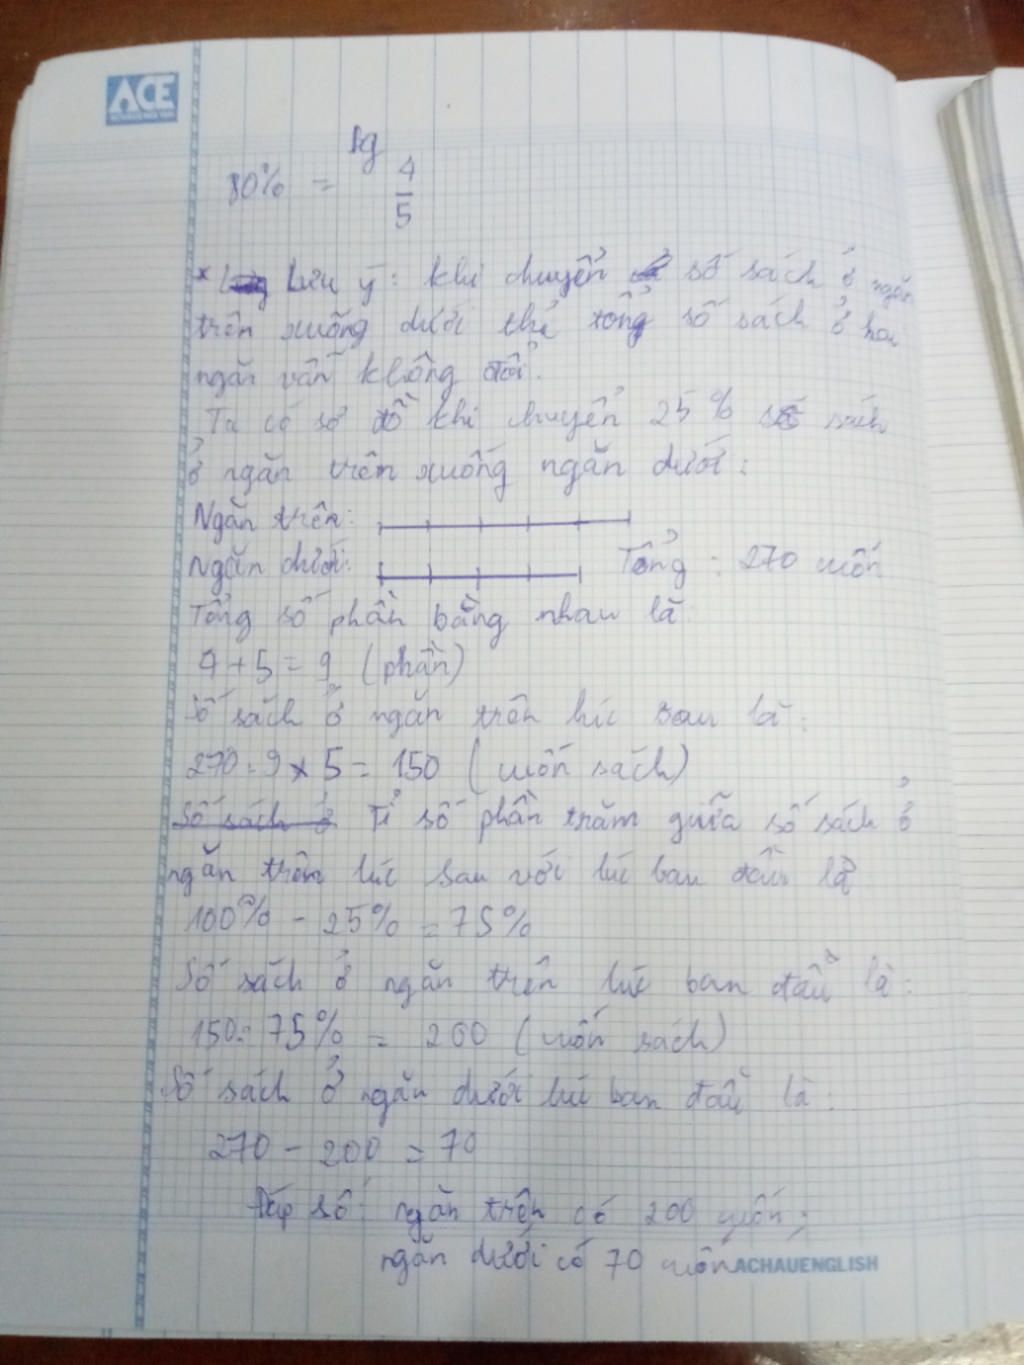 ACE
bg
80% = 4/5
* Lưu ý: khi chuyển số sách ở ngăn
trên xuống dưới thì tổng số sách ở hai
ngăn vẫn không đổi.
Ta có sơ đồ khi chuyển 25% số sách
ở ngăn trên xuống ngăn dưới:
Ngăn trên:
Ngăn dưới: Tổng: 270 cuốn
Tổng số phần bằng nhau là
4 + 5 = 9 (phần)
Số sách ở ngăn trên lúc sau là:
270 : 9 x 5 = 150 (cuốn sách)
Số sách ở Tỉ số phần trăm giữa số sách ở
ngăn trên lúc sau với lúc ban đầu là
100% - 25% = 75%
Số sách ở ngăn trên lúc ban đầu là:
150 : 75% = 200 (cuốn sách)
Số sách ở ngăn dưới lúc ban đầu là:
270 - 200 = 70
Đáp số: ngăn trên có 200 cuốn;
ngăn dưới có 70 cuốn
ACHAUENGLISH